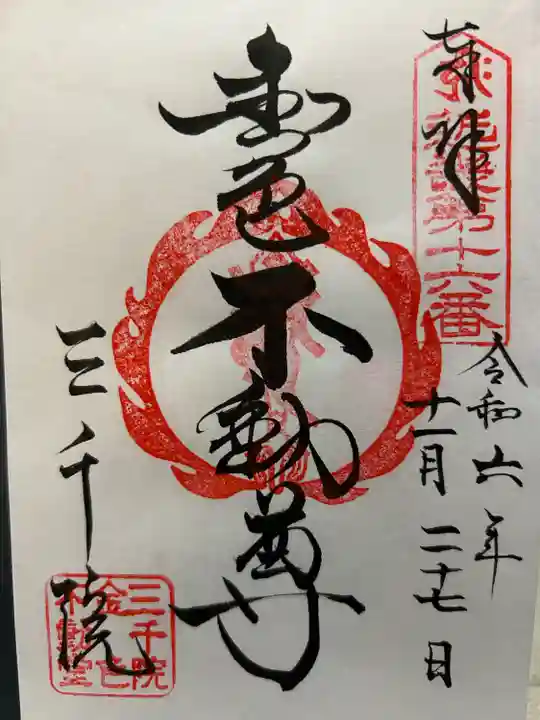 奉拝
近畿第十六番
令和六年
十一月二十七日
金色不動尊
三千院
三千院
金色
不動堂